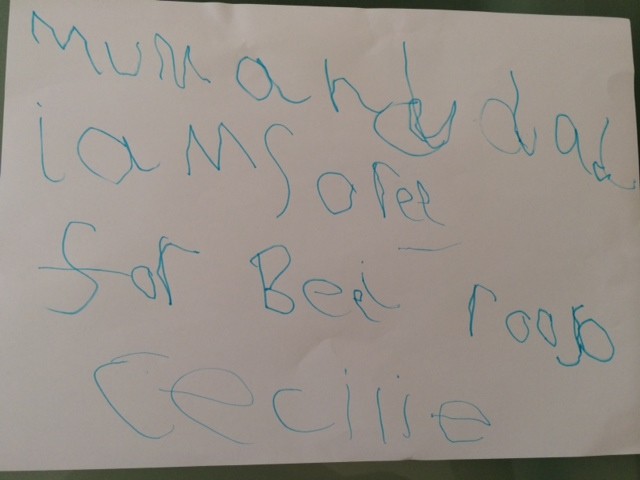 mum and dad
i am Soree
for Bei
Cecilie